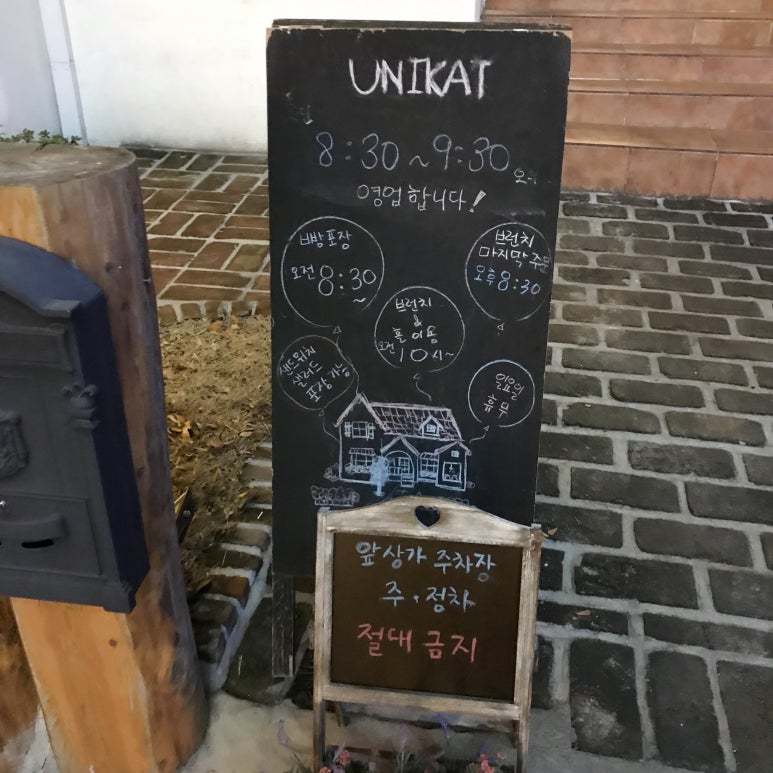 UNIKAT
8:30 ~ 9:30
영업합니다!
비밤포장
오전
8:30
~
브런치
마지막 주문
오후 8:30
브런치
&
홀 이용
오전 10시~
샌드위치
샐러드
포장 가능
일요일
휴무
앞 상가 주차장
주 · 정차
절대 금지